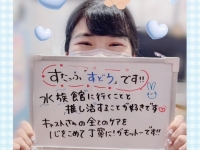 すたっふ "すどう" です!!
水族館に行くことと
推し活することが好きです♡
キャストさんの全てのケアを
心をこめて丁寧に!がもっとーです!!